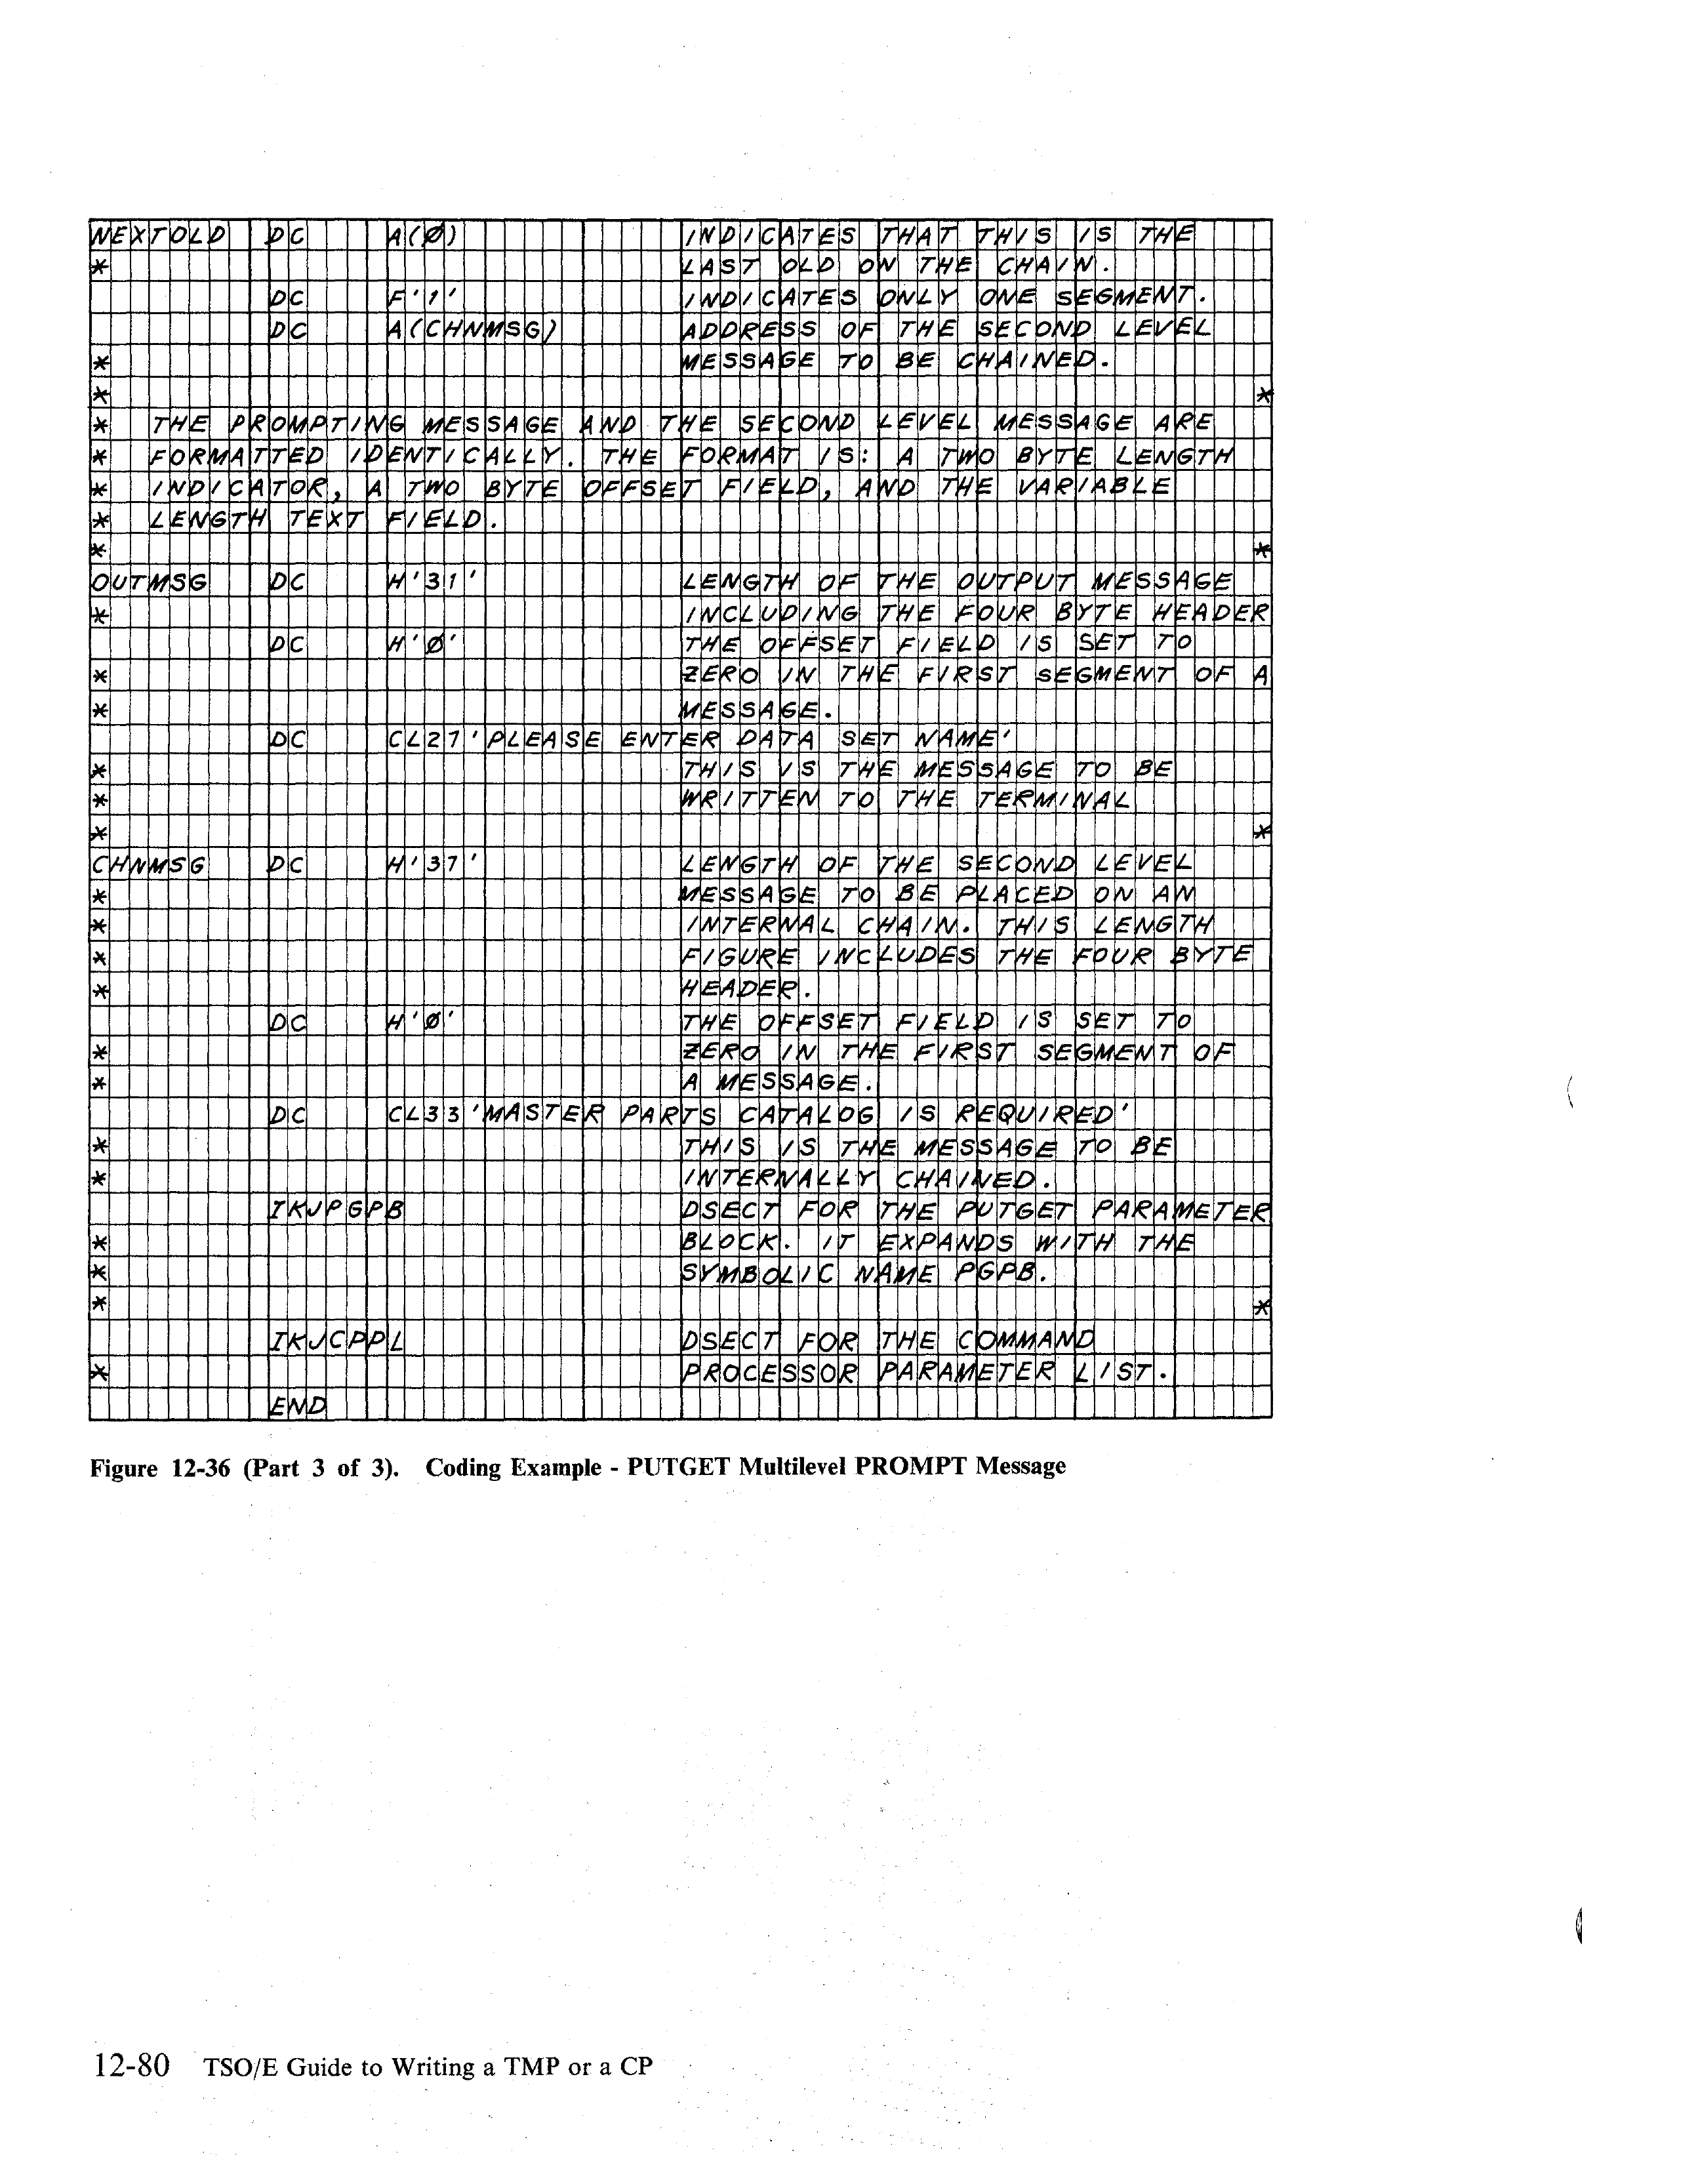 NEXTOLD  DC    A(Ø)           INDICATES THAT THIS IS THE
*                             LAST OLD ON THE CHAIN.
         DC    F'1'           INDICATES ONLY ONE SEGMENT.
         DC    A(CHNMSG)      ADDRESS OF THE SECOND LEVEL
*                             MESSAGE TO BE CHAINED.
*                                                          *
*  THE PROMPTING MESSAGE AND THE SECOND LEVEL MESSAGE ARE
*  FORMATTED IDENTICALLY. THE FORMAT IS: A TWO BYTE LENGTH
*  INDICATOR, A TWO BYTE OFFSET FIELD, AND THE VARIABLE
*  LENGTH TEXT FIELD.
*                                                          *
OUTMSG   DC    H'31'          LENGTH OF THE OUTPUT MESSAGE
*                             INCLUDING THE FOUR BYTE HEADER
         DC    H'Ø'           THE OFFSET FIELD IS SET TO
*                             ZERO IN THE FIRST SEGMENT OF A
*                             MESSAGE.
         DC    CL27'PLEASE ENTER DATA SET NAME'
*                             THIS IS THE MESSAGE TO BE
*                             WRITTEN TO THE TERMINAL
*                                                          *
CHNMSG   DC    H'37'          LENGTH OF THE SECOND LEVEL
*                             MESSAGE TO BE PLACED ON AN
*                             INTERNAL CHAIN. THIS LENGTH
*                             FIGURE INCLUDES THE FOUR BYTE
*                             HEADER.
         DC    H'Ø'           THE OFFSET FIELD IS SET TO
*                             ZERO IN THE FIRST SEGMENT OF
*                             A MESSAGE.
         DC    CL33'MASTER PARTS CATALOG IS REQUIRED'
*                             THIS IS THE MESSAGE TO BE
*                             INTERNALLY CHAINED.
         IKJPGPB              DSECT FOR THE PUTGET PARAMETER
*                             BLOCK. IT EXPANDS WITH THE
*                             SYMBOLIC NAME PGPB.
*                                                          *
         IKJCPPL              DSECT FOR THE COMMAND
*                             PROCESSOR PARAMETER LIST.
         END
Figure 12-36 (Part 3 of 3). Coding Example - PUTGET Multilevel PROMPT Message
12-80 TSO/E Guide to Writing a TMP or a CP